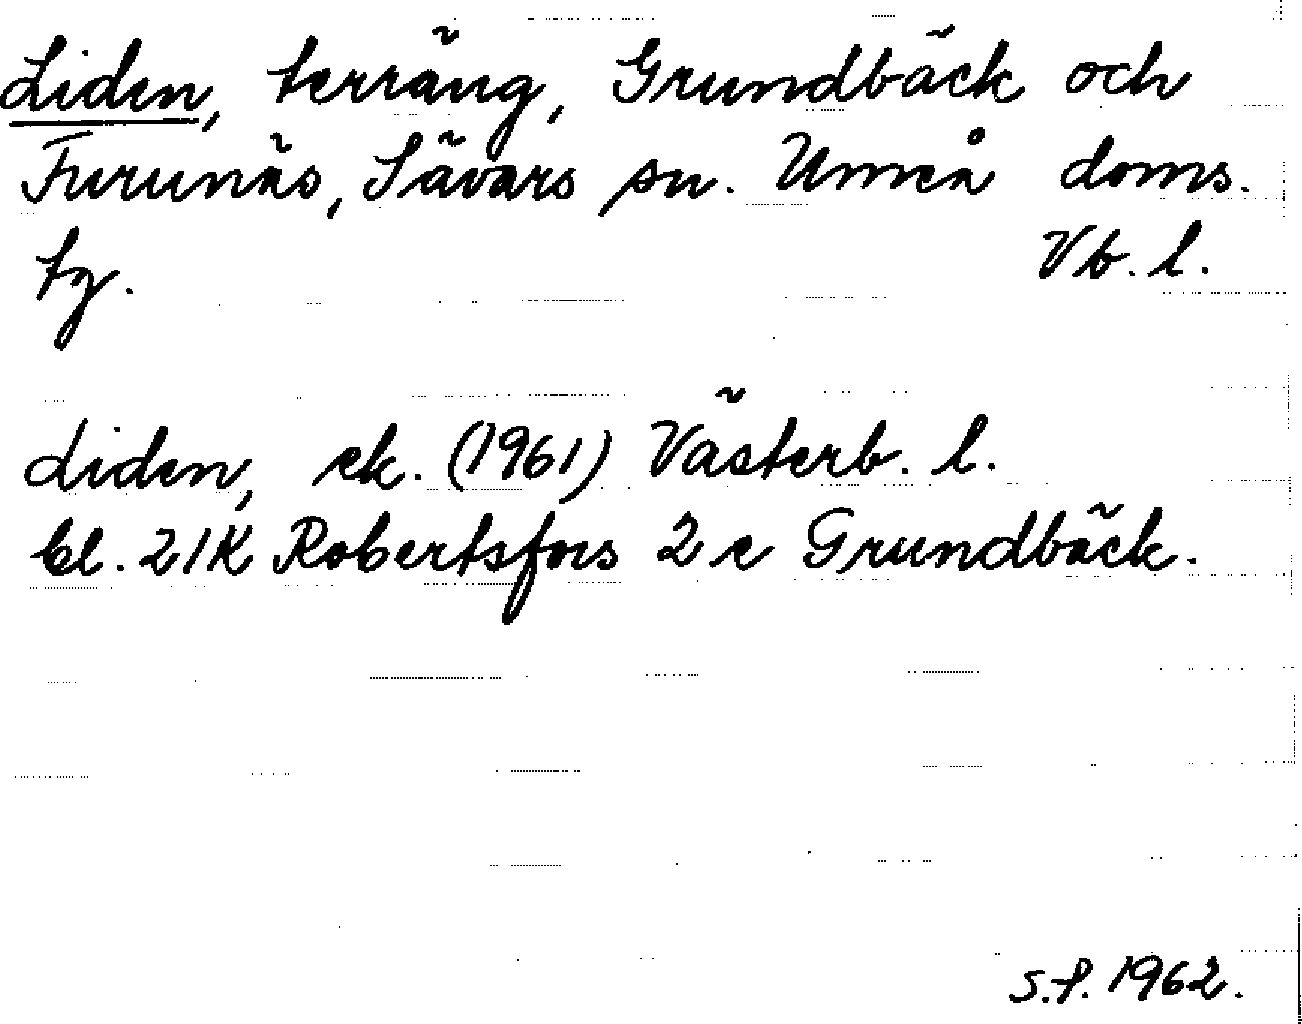 Liden, terräng, Grundbäck och
Furunäs, Sävars sn. Umeå doms.
tg. Vb. l.
Liden, ek. (1961) Västerb. l.
bl. 21K Robertsfors 2 c Grundbäck.
S.f. 1962.